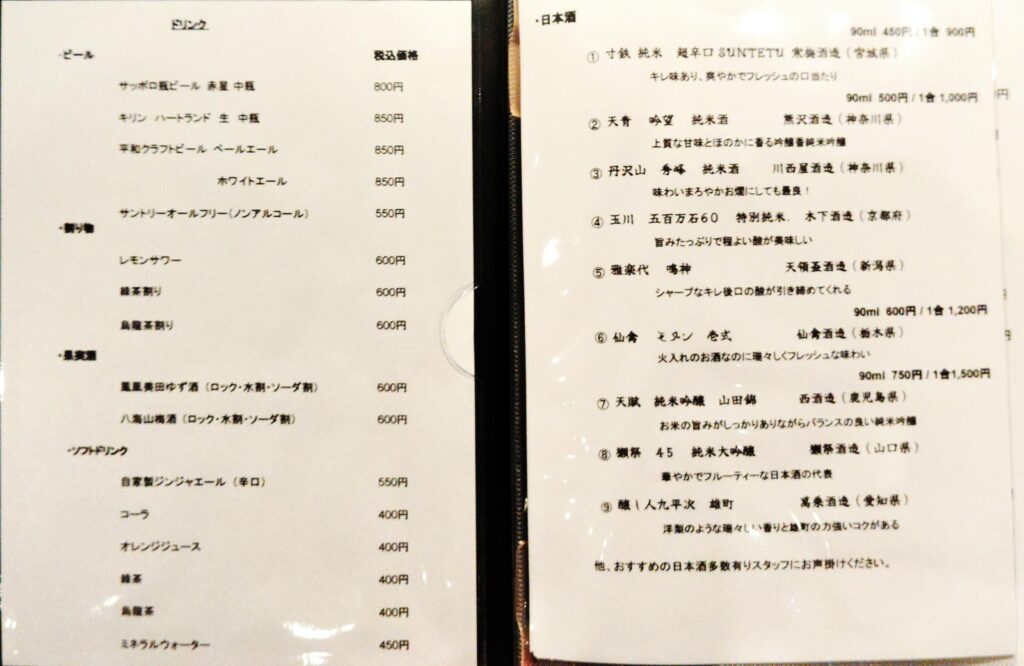 ドリンク
・ビール 税込価格
サッポロ瓶ビール 赤星 中瓶 800円
キリン ハートランド 生 中瓶 850円
平和クラフトビール ペールエール 850円
ホワイトエール 850円
サントリーオールフリー(ノンアルコール) 550円
・割り物
レモンサワー 600円
緑茶割り 600円
烏龍茶割り 600円
・果実酒
鳳凰美田ゆず酒 (ロック・水割・ソーダ割) 600円
八海山梅酒 (ロック・水割・ソーダ割) 600円
・ソフトドリンク
自家製ジンジャエール (辛口) 550円
コーラ 400円
オレンジジュース 400円
緑茶 400円
烏龍茶 400円
ミネラルウォーター 450円
・日本酒
90ml 450円 / 1合 900円
① 寸鉄 純米 超辛口 SUNTETU 寒梅酒造 (宮城県)
キレ味あり、爽やかでフレッシュの口当たり
90ml 500円 / 1合 1,000円
② 天青 吟望 純米酒 熊沢酒造 (神奈川県)
上質な甘味とほのかに香る吟醸香純米吟醸
③ 丹沢山 秀峰 純米酒 川西屋酒造 (神奈川県)
味わいまろやかお燗にしても最良!
④ 玉川 五百万石60 特別純米 木下酒造 (京都府)
旨みたっぷりで程よい酸が美味しい
⑤ 雅楽代 鳴神 天領盃酒造 (新潟県)
シャープなキレ後口の酸が引き締めてくれる
90ml 600円 / 1合 1,200円
⑥ 仙禽 モダン 壱式 仙禽酒造 (栃木県)
火入れのお酒なのに瑞々しくフレッシュな味わい
90ml 750円 / 1合1,500円
⑦ 天賦 純米吟醸 山田錦 西酒造 (鹿児島県)
お米の旨みがしっかりありながらバランスの良い純米吟醸
⑧ 獺祭 45 純米大吟醸 獺祭酒造 (山口県)
華やかでフルーティーな日本酒の代表
⑨ 醸し人九平次 雄町 萬乗酒造 (愛知県)
洋梨のような瑞々しい香りと雄町の力強いコクがある
他、おすすめの日本酒多数有りスタッフにお声掛けください。